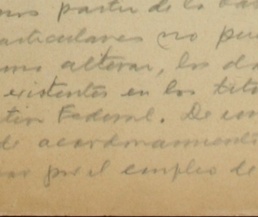 partir de la
articulares no pue
alterar, los
existentes en los
Federal. De con
de acordonamient
por el empleo de